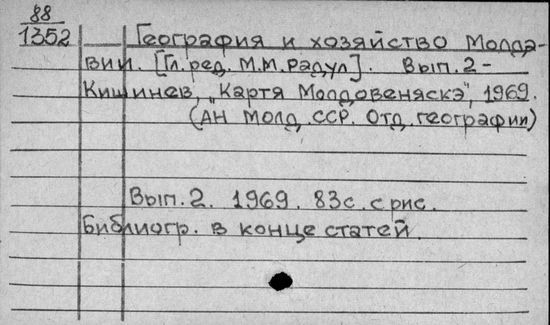 88
1352
География и хозяйство Молда-
вии. [Гл. ред. М.М. Радул]. Вып. 2-
Кишинев, "Картя Молдовеняскэ", 1969.
(АН Молд. ССР. Отд. географии)
Вып. 2. 1969. 83с. с рис.
Библиогр. в конце статей.